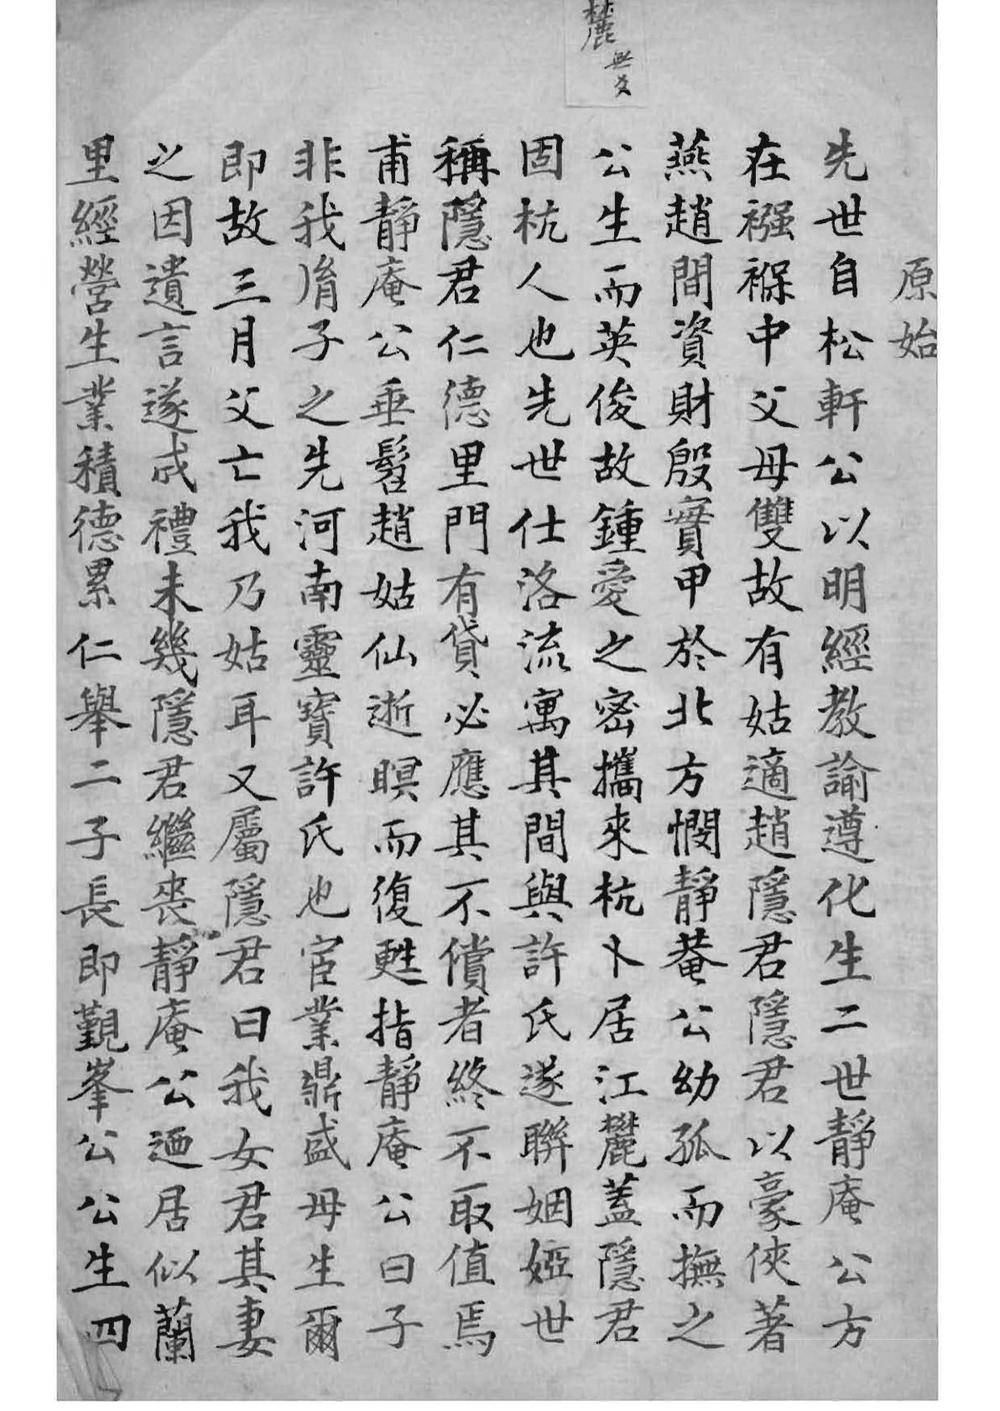 麓無文
原始
先世自松軒公以明經教諭遵化生二世靜庵公方
在襁褓中父母雙故有姑適趙隱君隱君以豪俠著
燕趙間資財殷實甲於北方憫靜菴公幼孤而撫之
公生而英俊故鍾愛之密攜來杭卜居江麓蓋隱君
固杭人也先世仕洛流寓其間與許氏遂聯姻婭世
稱隱君仁德里門有貸必應其不償者終不取值焉
甫靜庵公垂髫趙姑仙逝暝而復甦指靜庵公曰子
非我胤子之先河南靈寶許氏也宦業鼎盛母生爾
即故三月父亡我乃姑耳又屬隱君曰我女君其妻
之因遺言遂成禮未幾隱君繼喪靜庵公迺居似蘭
里經營生業積德累仁舉二子長即覲峯公公生四